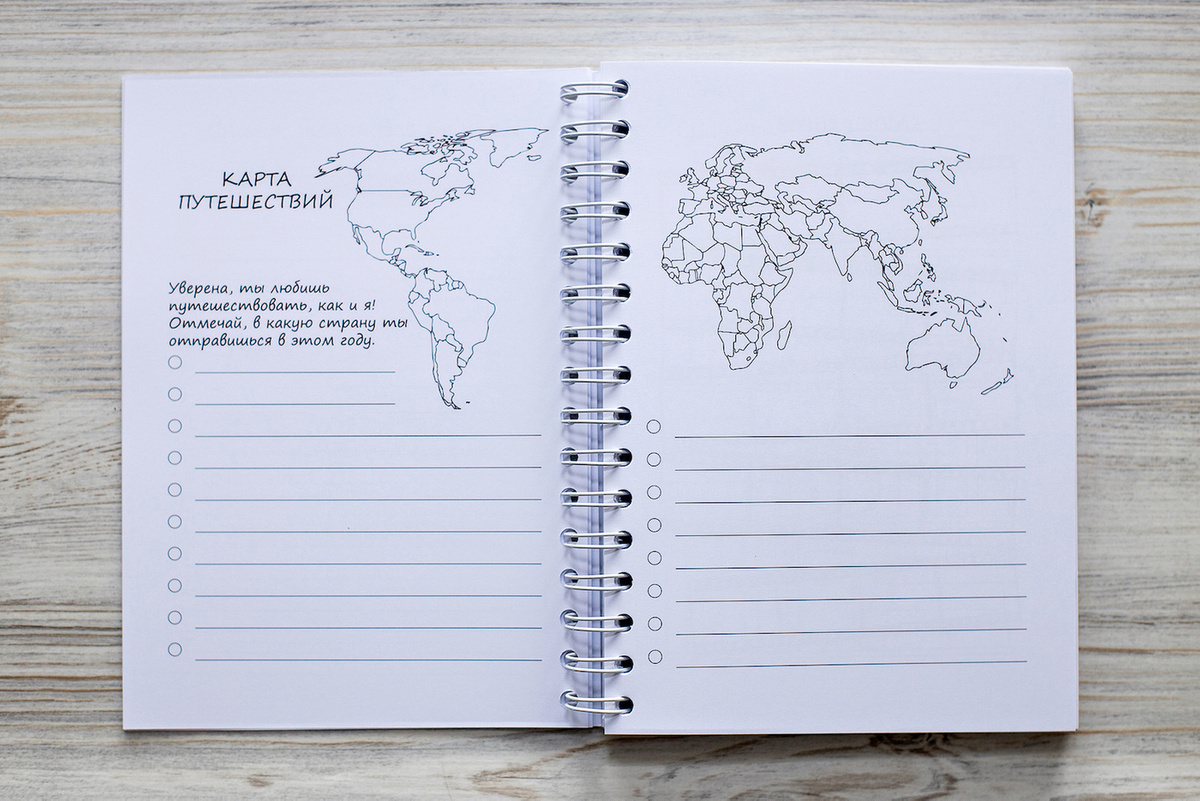 КАРТА
ПУТЕШЕСТВИЙ
Уверена, ты любишь
путешествовать, как и я!
Отмечай, в какую страну ты
отправишься в этом году.